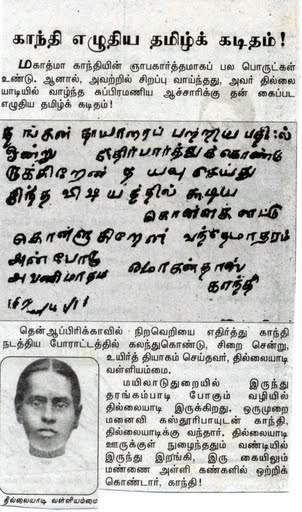 காந்தி எழுதிய தமிழ்க் கடிதம் !
மகாத்மா காந்தியின் ஞாபகார்த்தமாகப் பல பொருட்கள்
உண்டு. ஆனால், அவற்றில் சிறப்பு வாய்ந்தது, அவர் தில்லை
யாடியில் வாழ்ந்த சுப்பிரமணிய ஆச்சாரிக்கு தன் கைப்பட
எழுதிய தமிழ்க் கடிதம் !
தங்கள் தாயாரைப் பற்றிய பதில்
ஒன்று எதிர்பார்த்துக்கொண்டி
ருக்கிறேன் தயவு செய்து
இந்த விஷயத்தில் கூடிய
கொள்ளகிறேன் வந்தேமாதரம்
மோகன்தாஸ்
காந்தி
தென்ஆப்பிரிக்காவில் நிறவெறியை எதிர்த்து காந்தி
நடத்திய போராட்டத்தில் கலந்துகொண்டு, சிறை சென்று,
உயிர்த் தியாகம் செய்தவர், தில்லையாடி
வள்ளியம்மை.
மயிலாடுதுறையில் இருந்து
தரங்கம்பாடி போகும் வழியில்
தில்லையாடி இருக்கிறது. ஒருமுறை
மனைவி கஸ்தூரிபாயுடன் காந்தி,
தில்லையாடிக்கு வந்தார். தில்லையாடி
ஊருக்குள் நுழைந்ததும் வண்டியில்
இருந்து இறங்கி, இரு கையிலும்
மண்ணை அள்ளி கண்களில் ஒற்றிக்
கொண்டார், காந்தி !
தில்லையாடி வள்ளியம்மை